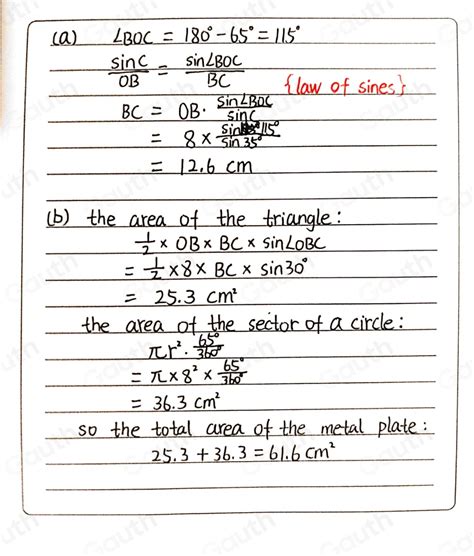 (a) ∠BOC = 180° - 65° = 115°
sinC/OB = sin∠BOC/BC
{law of sines}
BC = OB · sin∠BOC/sinC
= 8 × sin115°/sin35°
= 12.6 cm
(b) the area of the triangle:
1/2 × OB × BC × sin∠OBC
= 1/2 × 8 × BC × sin30°
= 25.3 cm²
the area of the sector of a circle:
πr² · 65°/360°
= π × 8² × 65°/360°
= 36.3 cm²
so the total area of the metal plate:
25.3 + 36.3 = 61.6 cm²